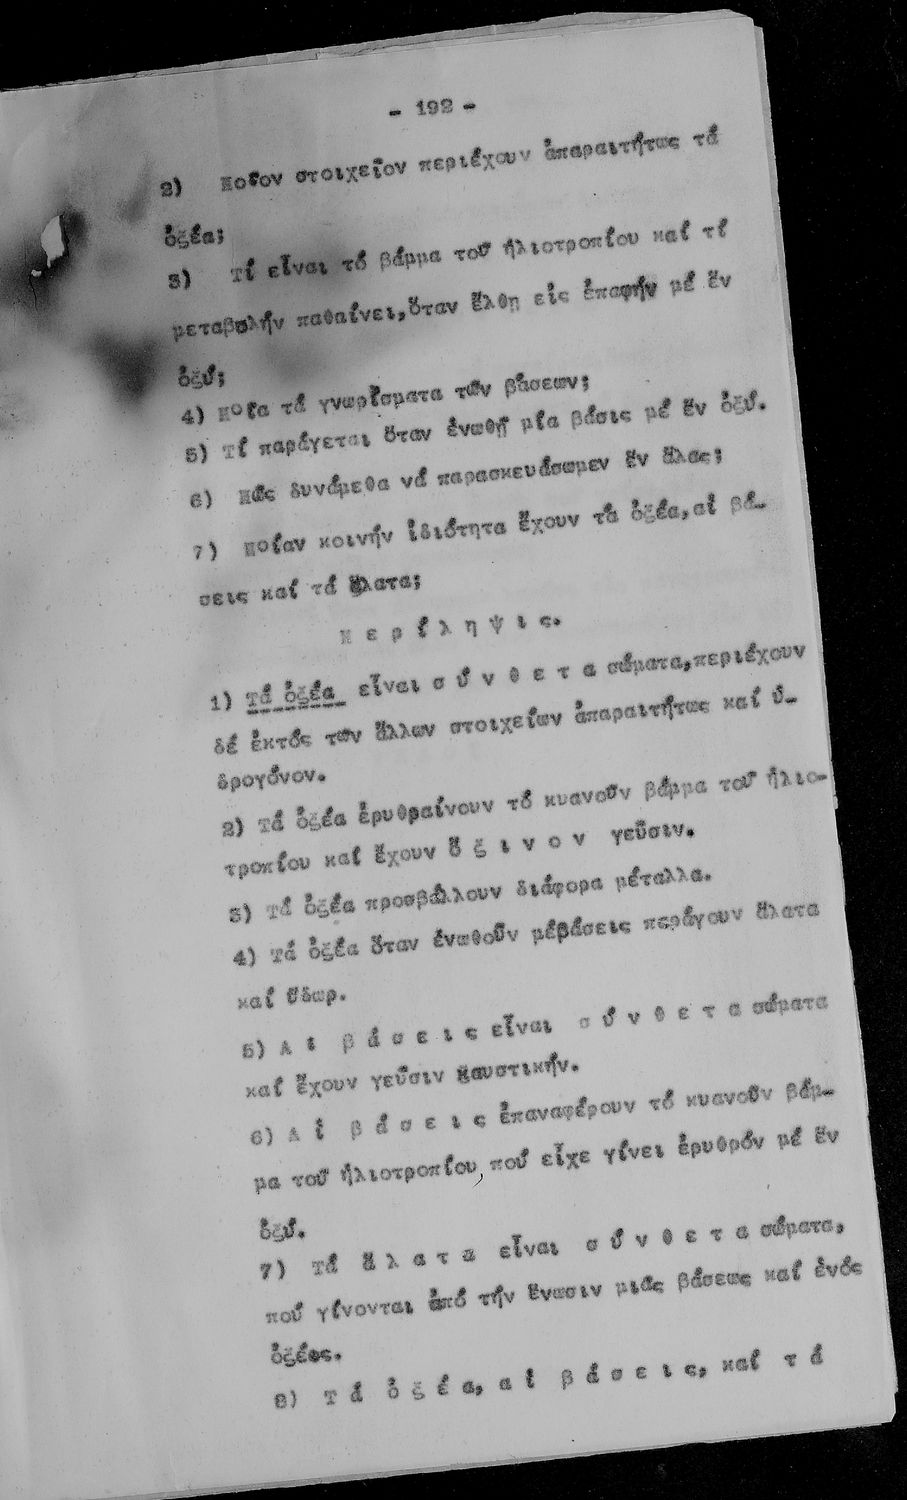 - 192 -
2) Ποῖον στοιχεῖον περιέχουν ἀπαραιτήτως τά
ὀξέα;
3) Τί εἶναι τό βάμμα τοῦ ἡλιοτροπίου καί τί
μεταβολήν παθαίνει,ὅταν ἔλθη εἰς ἐπαφήν μέ ἕν
ὀξύ;
4) Ποῖα τά γνωρίσματα τῶν βάσεων;
5) Τί παράγεται ὅταν ἑνωθῇ μία βάσις μέ ἕν ὀξύ.
6) Πῶς δυνάμεθα νά παρασκευάσωμεν ἕν ἅλας;
7) Ποίαν κοινήν ἰδιότητα ἔχουν τά ὀξέα,αἱ βά-
σεις καί τά ἅλατα;
Π ε ρ ί λ η ψ ι ς.
1) Τά ὀξέα εἶναι σ ύ ν θ ε τ α σώματα,περιέχουν
δέ ἐκτός τῶν ἄλλων στοιχείων ἀπαραιτήτως καί ὑ-
δρογόνον.
2) Τά ὀξέα ἐρυθραίνουν τό κυανοῦν βάμμα τοῦ ἡλιο-
τροπίου καί ἔχουν ὄ ξ ι ν ο ν γεῦσιν.
3) Τά ὀξέα προσβάλλουν διάφορα μέταλλα.
4) Τά ὀξέα ὅταν ἑνωθοῦν μέβάσεις περάγουν ἅλατα
καί ὕδωρ.
5) Α ἱ β ά σ ε ι ς εἶναι σ ύ ν θ ε τ α σώματα
καί ἔχουν γεῦσιν καυστικήν.
6) Α ἱ β ά σ ε ι ς ἐπαναφέρουν τό κυανοῦν βάμ-
μα τοῦ ἡλιοτροπίου, πού εἶχε γίνει ἐρυθρόν μέ ἕν
ὀξύ.
7) Τά ἅ λ α τ α εἶναι σ ύ ν θ ε τ α σώματα,
πού γίνονται ἀπό τήν ἕνωσιν μιᾶς βάσεως καί ἑνός
ὀξέος.
8) Τ ά ὀ ξ έ α, α ἱ β ά σ ε ι ς, καί τ ά